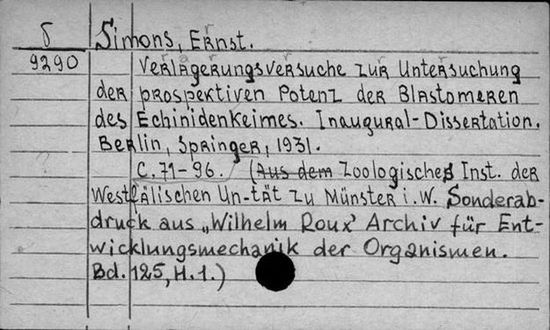 δ Simons, Ernst.
9290 Verlagerungsversuche zur Untersuchung
der prospektiven Potenz der Blastomeren
des Echinidenkeimes. Inaugural-Dissertation.
Berlin, Springer, 1931.
C. 71-96. (Aus dem Zoologisches Inst. der
Westfälischen Un-tät zu Münster i. W. Sonderab-
druck aus „Wilhelm Roux' Archiv für Ent-
wicklungsmechanik der Organismen.
Bd. 125, H. 1.)